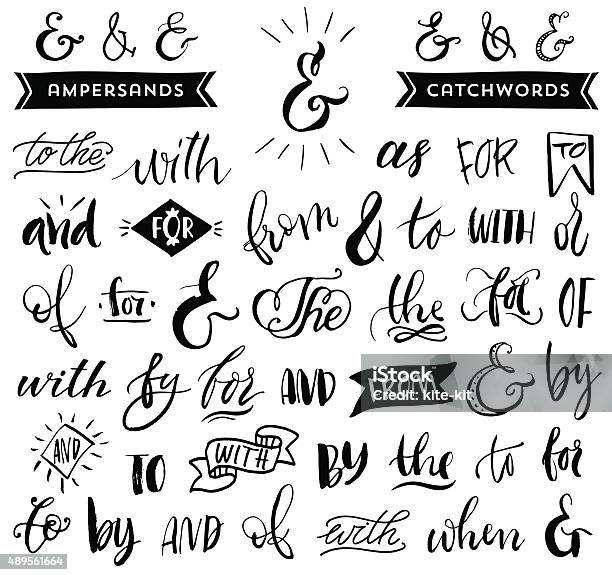 & & & & & & &
AMPERSANDS CATCHWORDS
to the with as FOR TO
and FOR from & to WITH or
of for & The the for OF
with by for AND FROM & by
iStock
Credit: kite-kit
AND TO WITH BY the to for
to by AND of with when &
489561664